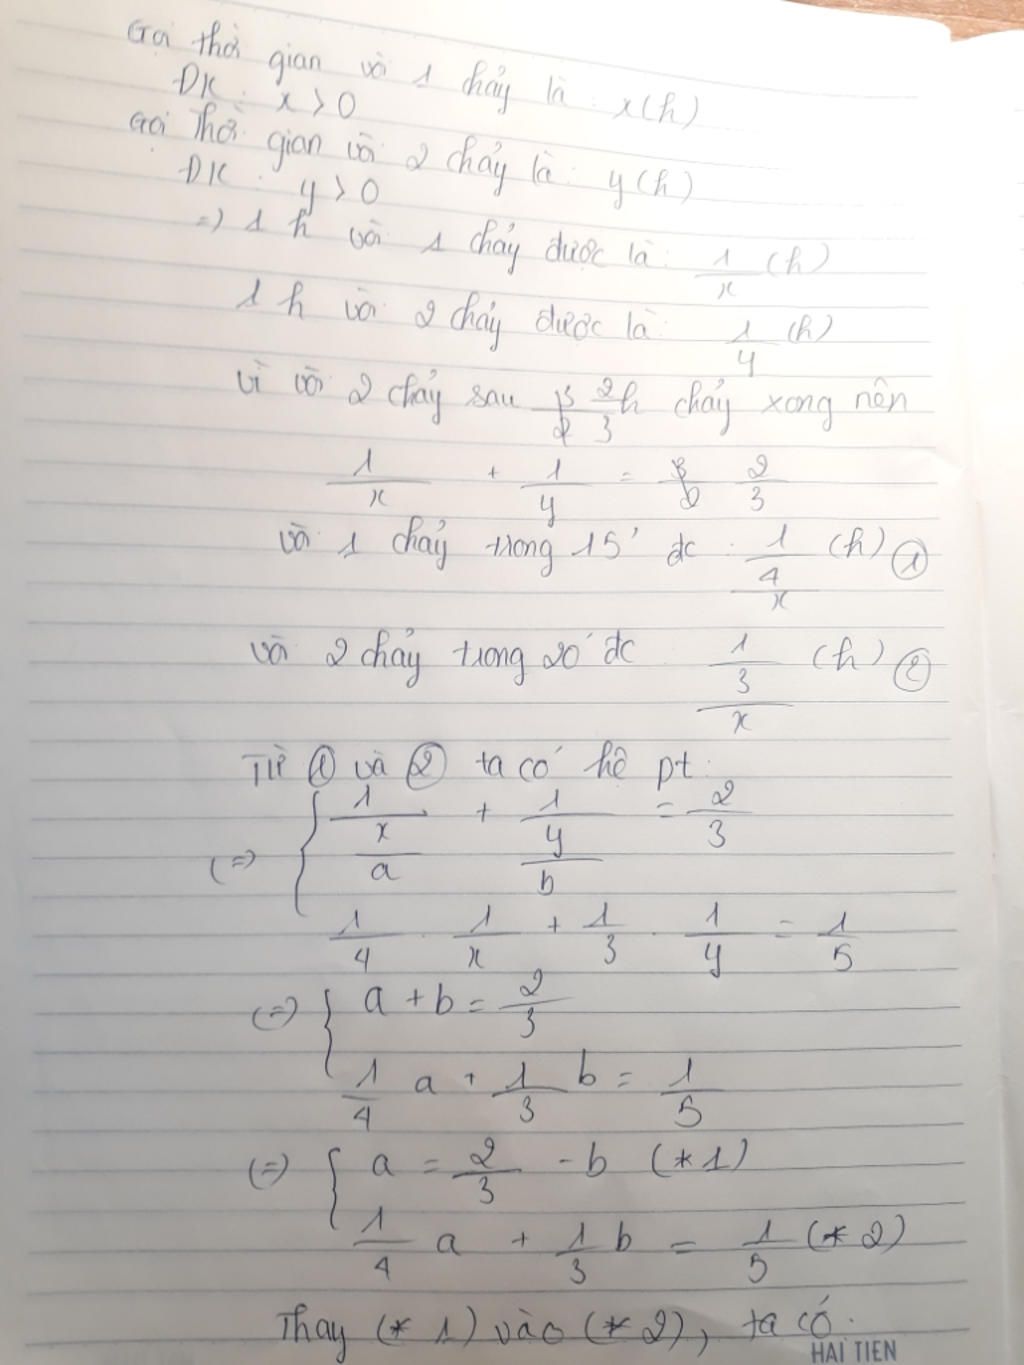 Gọi thời gian vòi 1 chảy là : x(h)
ĐK : x > 0
Gọi thời gian vòi 2 chảy là : y(h)
ĐK : y > 0
=) 1 h vòi 1 chảy được là : 1/x (h)
1 h vòi 2 chảy được là : 1/y (h)
Vì vòi 2 chảy sau 2/3 h chảy xong nên
1/x + 1/y = 2/3
vòi 1 chảy trong 15' đc : 1/4/x (h) ①
vòi 2 chảy trong 20' đc 1/3/x (h) ②
Từ ① và ② ta có hệ pt :
(=) { 1/x/a + 1/y/b = 2/3
1/4 . 1/x + 1/3 . 1/y = 1/5
(=) { a + b = 2/3
1/4 a + 1/3 b = 1/5
(=) { a = 2/3 - b (*1)
1/4 a + 1/3 b = 1/5 (*2)
Thay (*1) vào (*2), ta có :
HẢI TIẾN